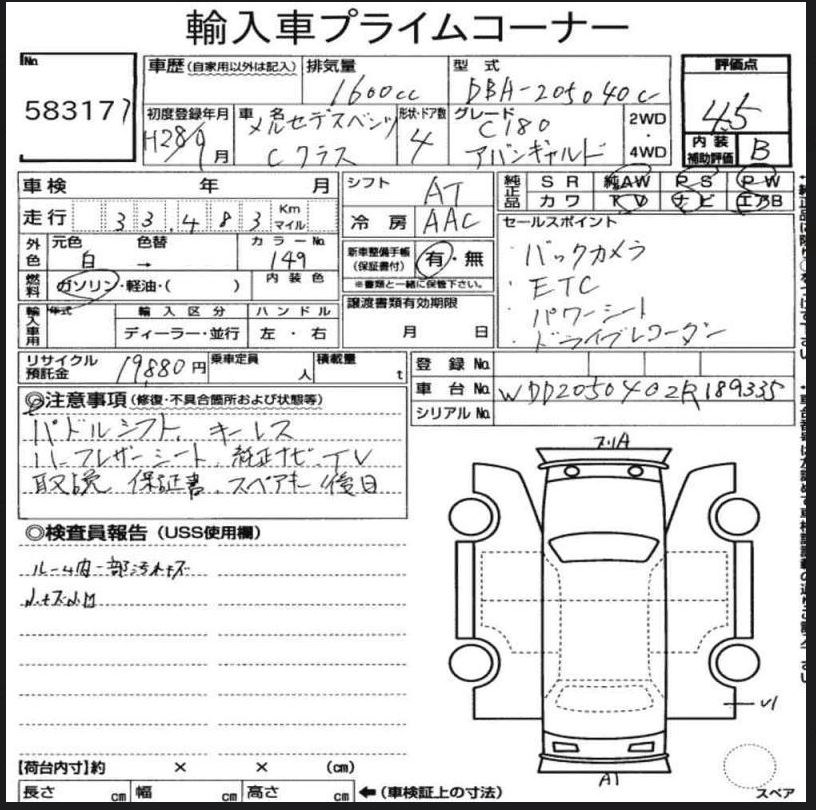 輸入車プライムコーナー
No
58317
車歴(自家用以外は記入)
排気量
1600cc
型式
DBA-205040C
評価点
4.5
初度登録年月
H28/9月
車名
メルセデスベンツ
Cクラス
形状・ドア数
4
グレード
C180
アバンギャルド
2WD
・
4WD
内装
補助評価
B
車検 年 月
走行 33,483 Km
マイル
外色
元色 色替
白 →
カラーNo
149
燃料
ガソリン・軽油・( )
内装色
輸入車用
年式
輸入区分
ディーラー・並行
ハンドル
左・右
シフト
AT
冷房
AAC
新車整備手帳
(保証書付)
有・無
※書類と一緒に保管下さい。
譲渡書類有効期限
月 日
純正品
SR 純AW PS PW
カワ TV ナビ エアB
セールスポイント
・バックカメラ
・ETC
・パワーシート
・ドライブレコーダー
リサイクル
預託金
19,880円
乗車定員
人
積載量
t
登録No.
車台No.
WDD2050402R189335
シリアルNo.
◎注意事項(修復・不具合箇所および状態等)
パドルシフト、キーレス
ハーフレザーシート、純正ナビ、TV
取説、保証書、スペアキー後日
◎検査員報告(USS使用欄)
ルーム内一部汚れキズ
A1
U1
スペア
【荷台内寸】約 × × (cm)
長さ cm 幅 cm 高さ cm ←(車検証上の寸法)